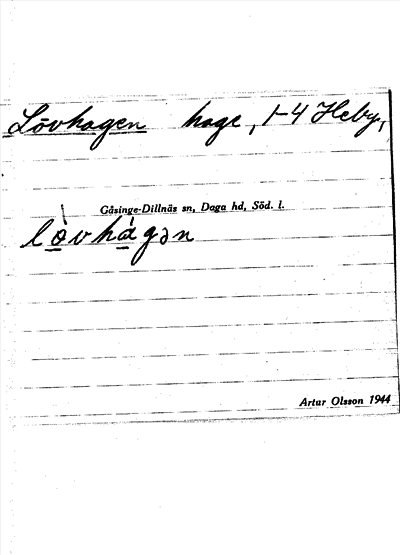 Lövhagen hage, 1-4 Heby,
Gåsinge-Dillnäs sn, Daga hd, Söd. l.
lòvhágən
Artur Olsson 1944